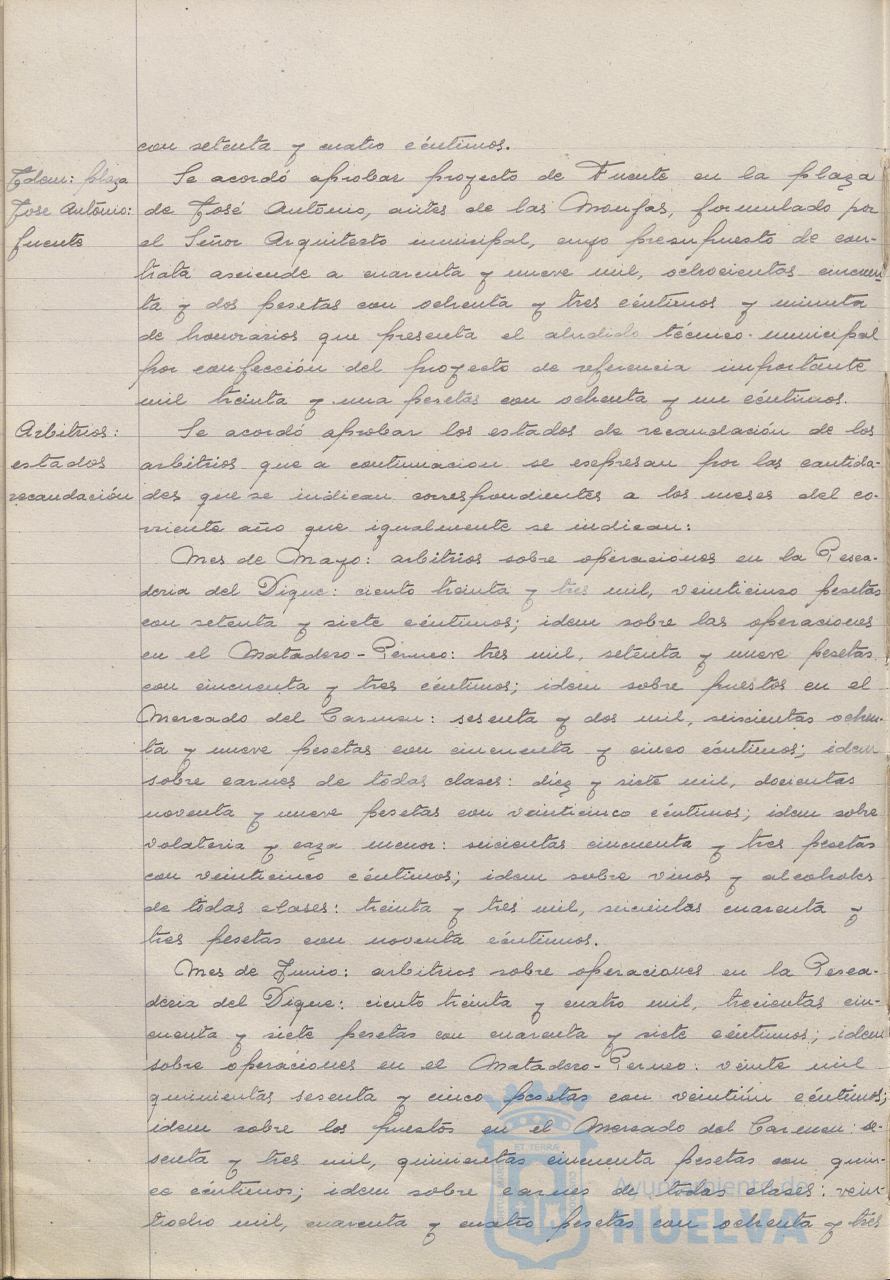 con setenta y cuatro céntimos.
Idem: plaza
José António:
fuente
Se acordó aprobar proyecto de Fuente en la plaza
de José António, antes de las Monjas, formulado por
el Señor Arquitecto municipal, cuyo presupuesto de con-
trata asciende a cuarenta y nueve mil, ochocientas cincuen-
ta y dos pesetas con ochenta y tres céntimos y minuta
de honorarios que presenta el aludido técnico municipal
por confección del proyecto de referencia importante
mil treinta y una pesetas con ochenta y un céntimos.
Arbitrios:
estados
recaudación
Se acordó aprobar los estados de recaudación de los
arbitrios que a continuacion se expresan por las cantida-
des que se indican correspondientes a los meses del co-
rriente año que igualmente se indican:
Mes de Mayo: arbitrios sobre operaciones en la Pesca-
deria del Dique: ciento treinta y tres mil, veinticinco pesetas
con setenta y siete céntimos; idem sobre las operaciones
en el Matadero-Perneo: tres mil, setenta y nueve pesetas
con cincuenta y tres céntimos; idem sobre puestos en el
Mercado del Carmen: sesenta y dos mil, seiscientas ochen-
ta y nueve pesetas con cincuenta y cinco céntimos; idem
sobre carnes de todas clases: diez y siete mil, docientas
noventa y nueve pesetas con veinticinco céntimos; idem sobre
volateria y caza menor: seicientas cincuenta y tres pesetas
con veinticinco céntimos; idem sobre vinos y alcoholes
de todas clases: treinta y tres mil, seicientas cuarenta y
tres pesetas con noventa céntimos.
Mes de Junio: arbitrios sobre operaciones en la Pesca-
deria del Dique: ciento treinta y cuatro mil, trecientas cin-
cuenta y siete pesetas con cuarenta y siete céntimos; idem
sobre operaciones en el Matadero-Perneo: veinte mil
quinientas sesenta y cinco pesetas con veintiún céntimos;
idem sobre los puestos en el Mercado del Carmen: se-
senta y tres mil, quinientas cincuenta pesetas con quin-
ce céntimos; idem sobre carnes de todas clases: vein-
tiocho mil, cuarenta y cuatro pesetas con ochenta y tres
Ayuntamiento de
HUELVA